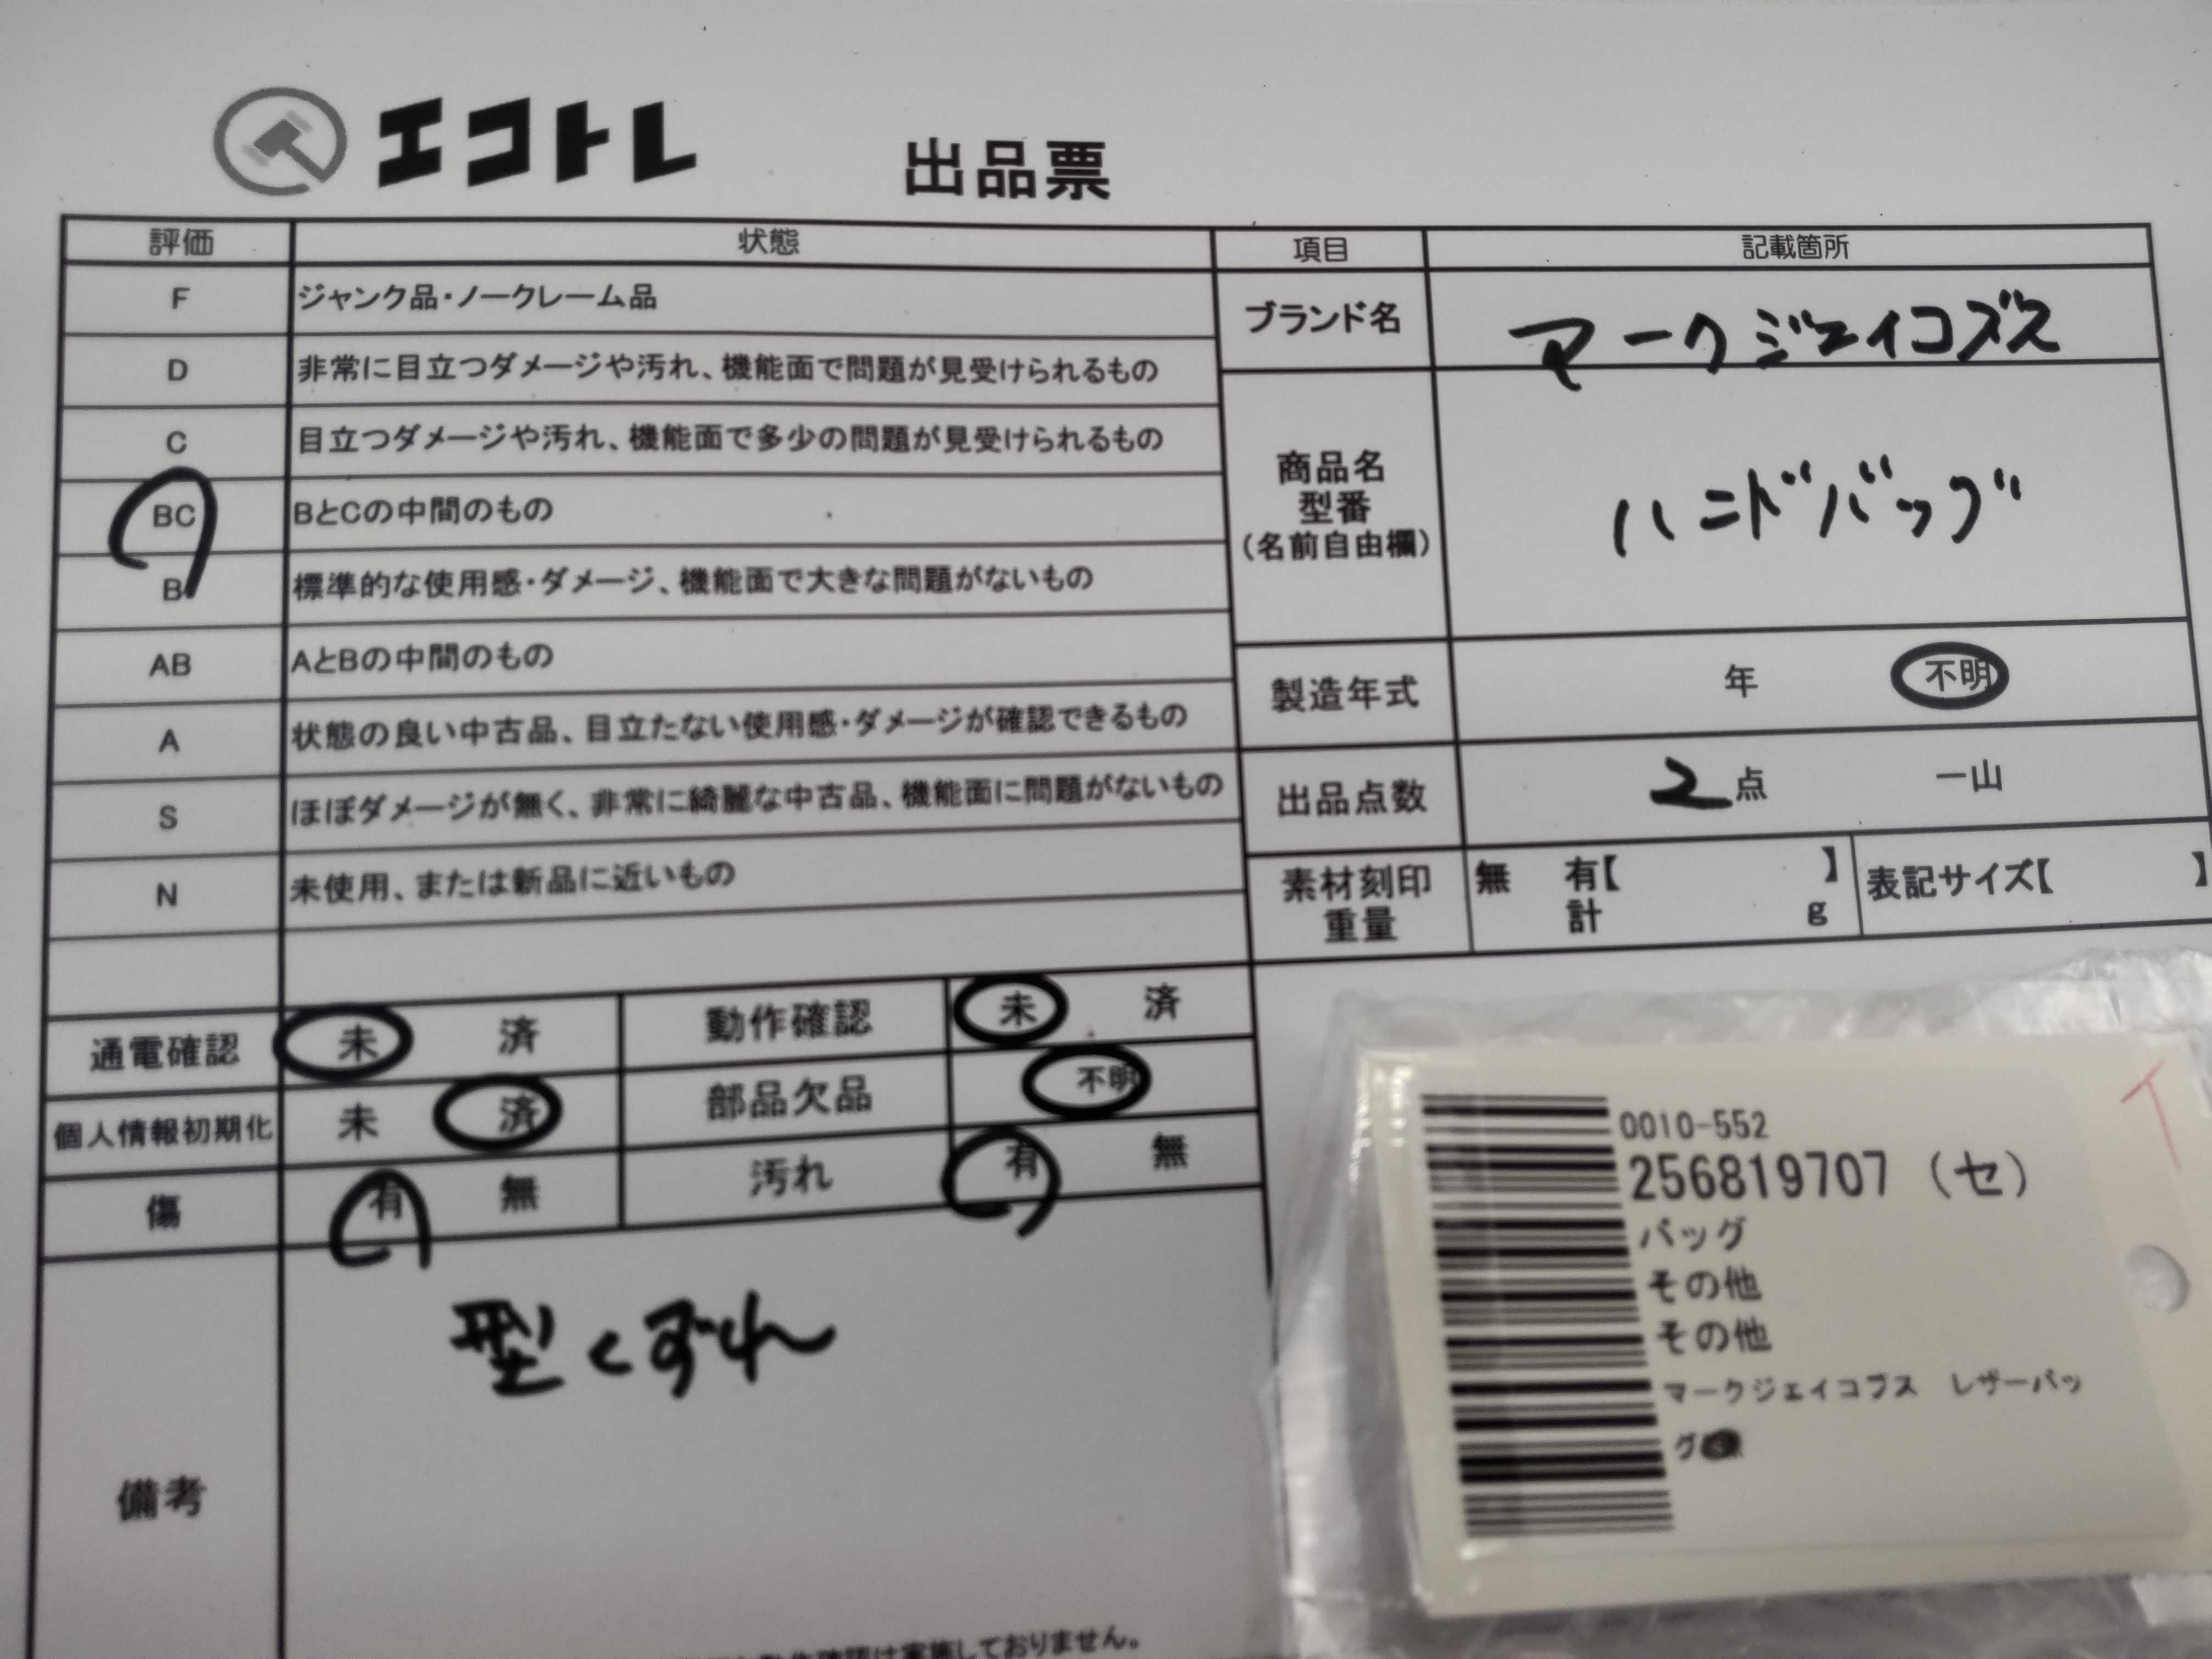 エコトレ
出品票
評価 状態 項目 記載箇所
F ジャンク品・ノークレーム品
D 非常に目立つダメージや汚れ、機能面で問題が見受けられるもの
C 目立つダメージや汚れ、機能面で多少の問題が見受けられるもの
BC BとCの中間のもの
B 標準的な使用感・ダメージ、機能面で大きな問題がないもの
AB AとBの中間のもの
A 状態の良い中古品、目立たない使用感・ダメージが確認できるもの
S ほぼダメージが無く、非常に綺麗な中古品、機能面に問題がないもの
N 未使用、または新品に近いもの
ブランド名 マークジェイコブス
商品名
型番
(名前自由欄)
ハンドバッグ
製造年式 年 不明
出品点数 2点 一山
素材刻印
重量
無 有【 】
計 g
表記サイズ【 】
通電確認 未 済 動作確認 未 済
個人情報初期化 未 済 部品欠品 不明
傷 有 無 汚れ 有 無
備考
型くずれ
動作確認は実施しておりません。
0010-552
256819707 (セ)
バッグ
その他
その他
マークジェイコブス レザーバッ
グ
イ